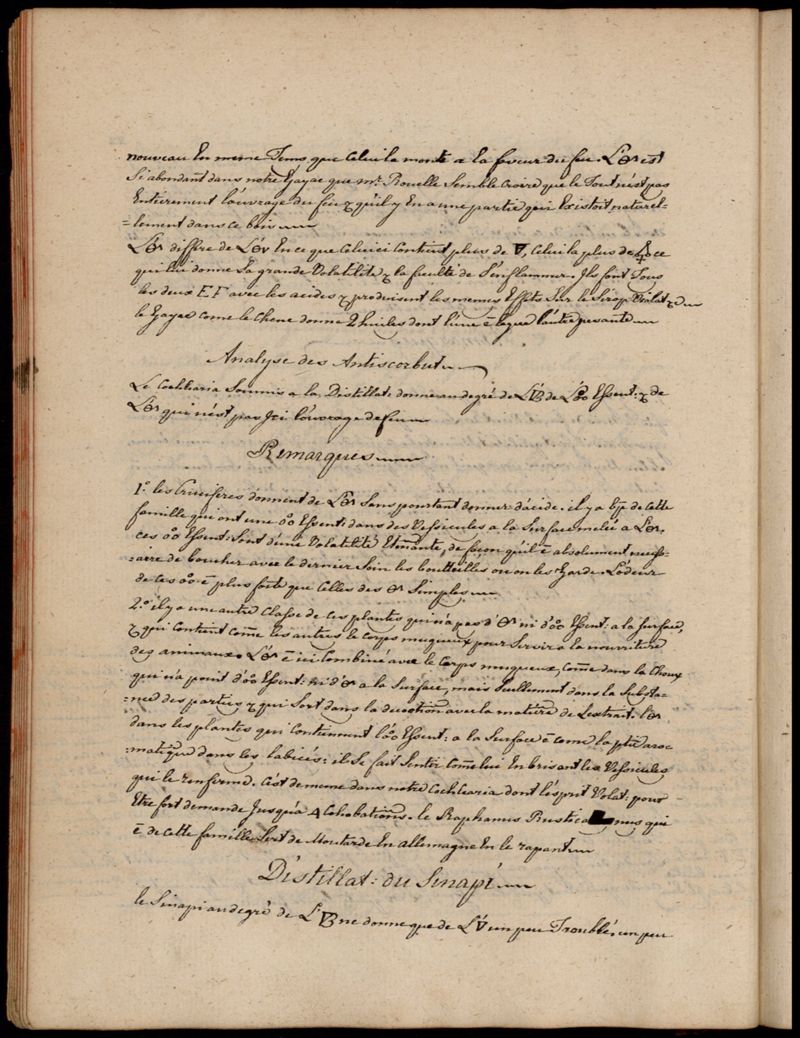 nouveau En meme Tems que Celui la monte a la faveur du feu. L'🜹 est
Si abondant dans notre Gayac que mr. Rouelle Semble Croire que le Tout n'est pas
Entierement l'ouvrage du feu & qu'il y En a une partie qui Existoit naturel-
=lement dans ce bois
differe de En ce que Celui ci Contient plus de 🜄, Celui la plus de 🜍 ce
qui lui donne Sa grande Volatilité & la faculté de S'enflammer. Ils font Tous
les deux EF avec les acides & produisent les memes Effets Sur le Sirop Violat &
le Gayac come le Chene donne 2 huiles dont l'une ē legere l'autre pesante
Analyse des Antiscorbut
Le Cochlearia Soumis a la Distillat: donne au degré de L' de L' Essent: & de
L' qui n'est pas Ici l'ouvrage de feu
Remarques
1.° les Cruciferes donnent de L' Sans pourtant donner d'acide: il y a bp de Cette
famille qui ont une Essent: dans des Vessicules a la Surface melée a L'
ces Essent: Sont d'une Volatilité Etonnante, de façon qu'il ē absolument necess-
-aire de boucher avec le dernier Soin les boutteilles ou on les Garde. L'odeur
de ces ē plus forte que celles des Simples
2.° il y a une autre Classe de ces plantes qui n'a pas d' ni d' Essent: a la Surface,
& qui Contient come les autres le Corps muqueux pour Servir a la nourriture
des animaux. L' ē ici Combiné avec le Corps muqueux, come dans la Choux
qui n'a point d' Essent: ni d' a la Surface, mais Seullement dans la Substa-
=nce des parties & qui Sort dans la decoction avec la matiere de L'extrait. L'
dans les plantes qui Contiennent l' Essent: a la Surface ē come la ptie aro-
-matique dans les labiées: il Se fait Sentir Come lui En brisant les Vessicules
qui le renferme. C'est de meme dans notre Cochlearia dont l'esprit Volat: pour
Etre fort demande Jusqu'a 4 Cohobations. le Raphanus Rusticanus, qui
ē de Cette famille Sert de Moutarde En allemagne En le rapant
Distillat: du Sinapi
le Sinapi au degré de L' ne donne que de L'🜄 un peu Troublé, un peu